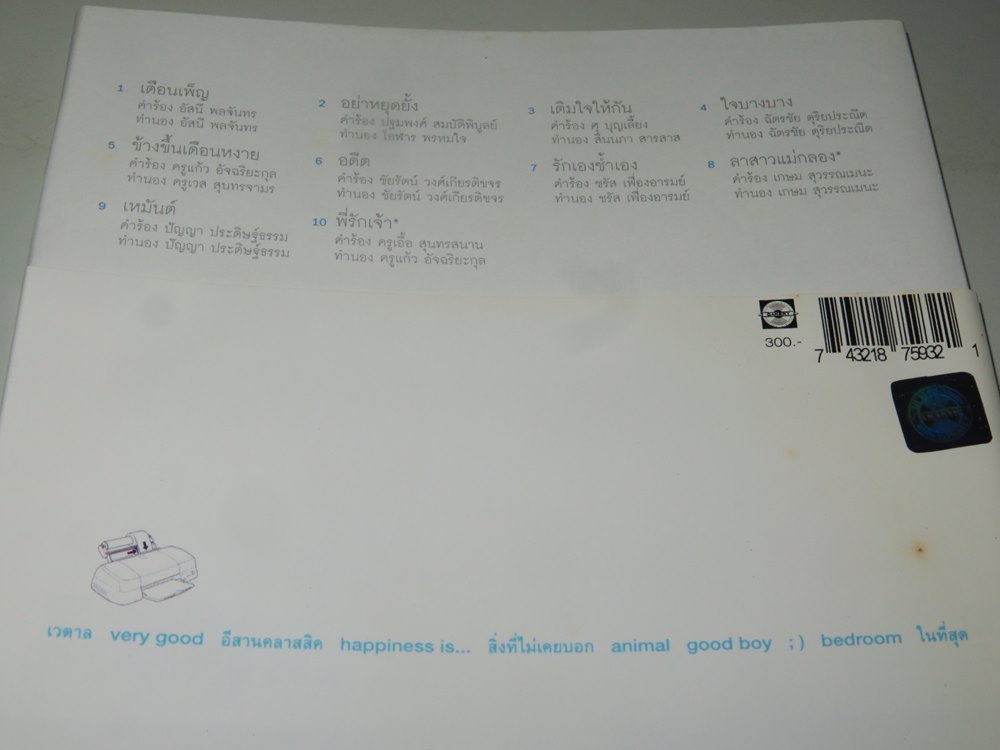 1 เดือนเพ็ญ
คำร้อง อัสนี พลจันทร
ทำนอง อัสนี พลจันทร
2 อย่าหยุดยั้ง
คำร้อง ปฐมพงศ์ สมบัติพิบูลย์
ทำนอง โอฬาร พรหมใจ
3 เติมใจให้กัน
คำร้อง ศุ บุญเลี้ยง
ทำนอง สินนภา สารสาส
4 ใจบางบาง
คำร้อง ฉัตรชัย ดุริยประณีต
ทำนอง ฉัตรชัย ดุริยประณีต
5 ข้างขึ้นเดือนหงาย
คำร้อง ครูแก้ว อัจฉริยะกุล
ทำนอง ครูเวส สุนทรจามร
6 อดีต
คำร้อง ชัยรัตน์ วงศ์เกียรติขจร
ทำนอง ชัยรัตน์ วงศ์เกียรติขจร
7 รักเองช้ำเอง
คำร้อง ชรัส เฟื่องอารมย์
ทำนอง ชรัส เฟื่องอารมย์
8 ลาสาวแม่กลอง*
คำร้อง เกษม สุวรรณเมนะ
ทำนอง เกษม สุวรรณเมนะ
9 เหมันต์
คำร้อง ปัญญา ประดิษฐ์ธรรม
ทำนอง ปัญญา ประดิษฐ์ธรรม
10 พี่รักเจ้า*
คำร้อง ครูเอื้อ สุนทรสนาน
ทำนอง ครูแก้ว อัจฉริยะกุล
300.-
7 43218 75932 1
เวตาล very good อีสานคลาสสิค happiness is... สิ่งที่ไม่เคยบอก animal good boy ;) bedroom ในที่สุด